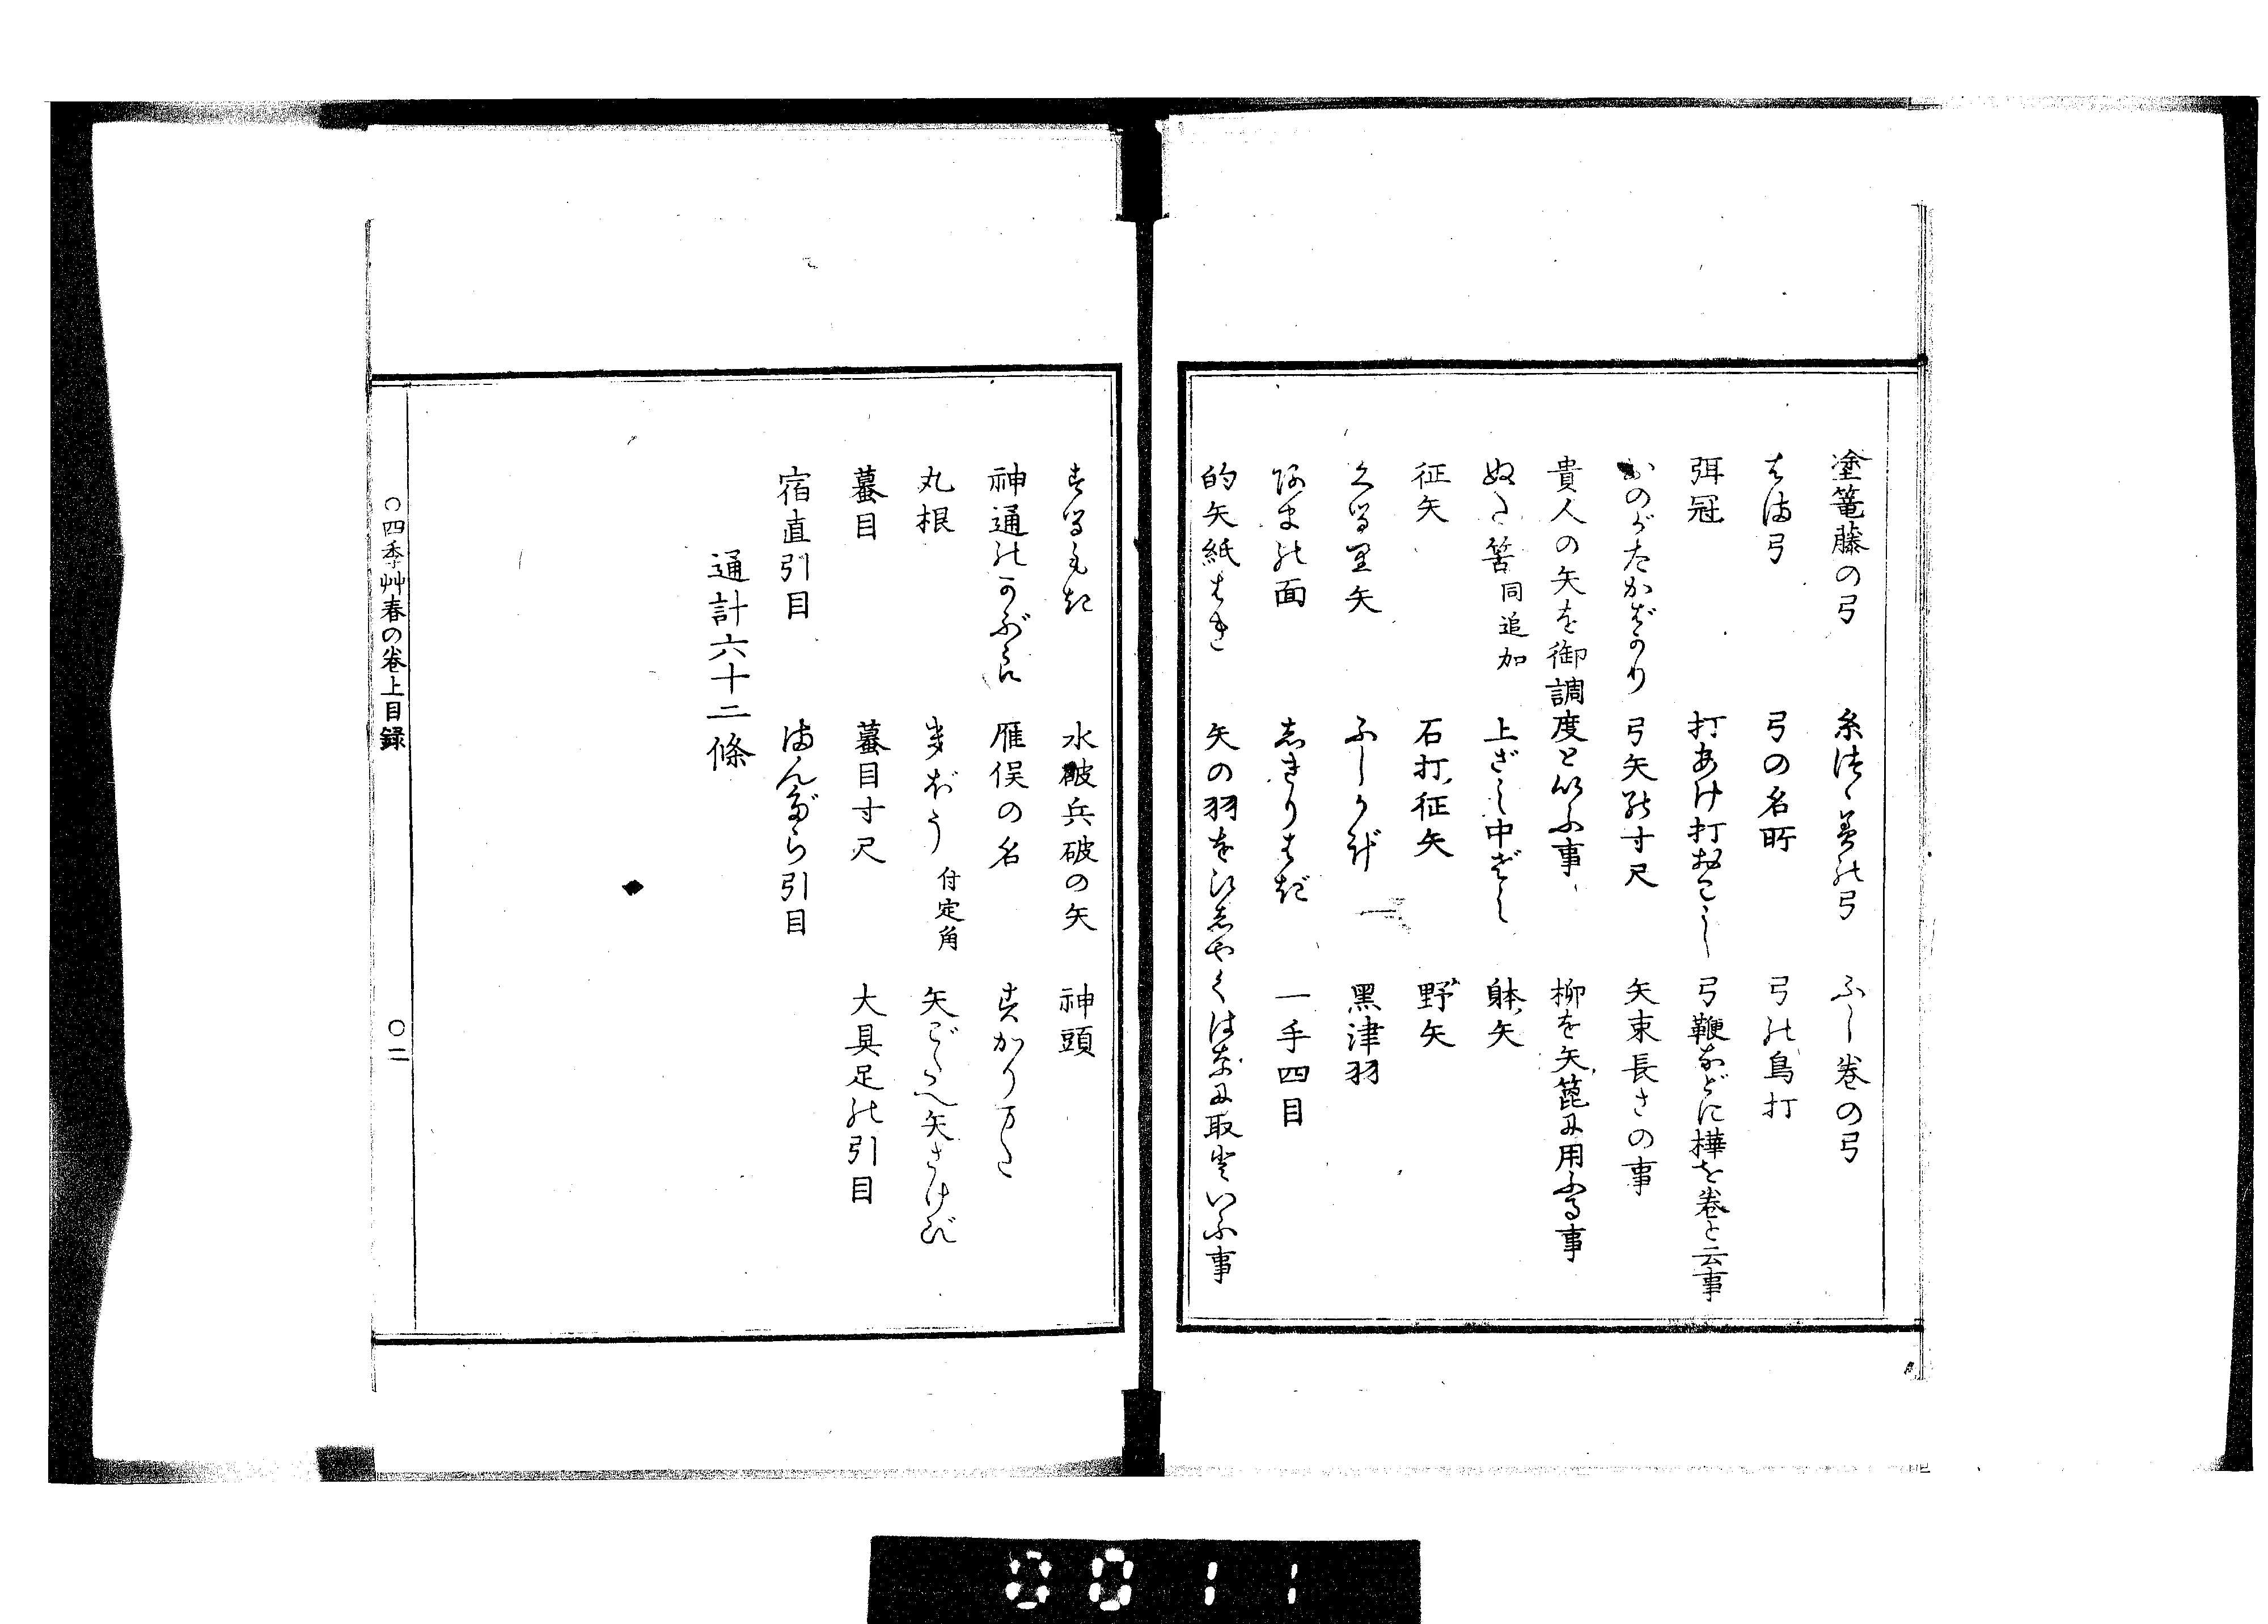 塗篭藤の弓　糸つゝみの弓　ふし巻の弓
はま弓　弓の名所　弓の鳥打
弭冠　打あけ打おこし　弓鞭などに樺を巻と云事
かのがたかばかり　弓矢の寸尺　矢束長さの事
貴人の矢を御調度といふ事　柳を矢箆に用ふる事
ぬた筈 同追加　上ざし中ざし　躰矢
征矢　石打征矢　野矢
くるり矢　ふしかげ　黒津羽
的矢紙はき　矢の羽をひしやくはなに取といふ事
しきりはぎ　一手四目
水破兵破の矢　神頭
神通のかぶら　雁俣の名　すかりまた
丸根　まばう 付定角　矢ごたへ矢さけび
蟇目　蟇目寸尺　大具足の引目
宿直引目　まんだら引目
通計六十二條
○四季艸春の巻上目録　○二
0011